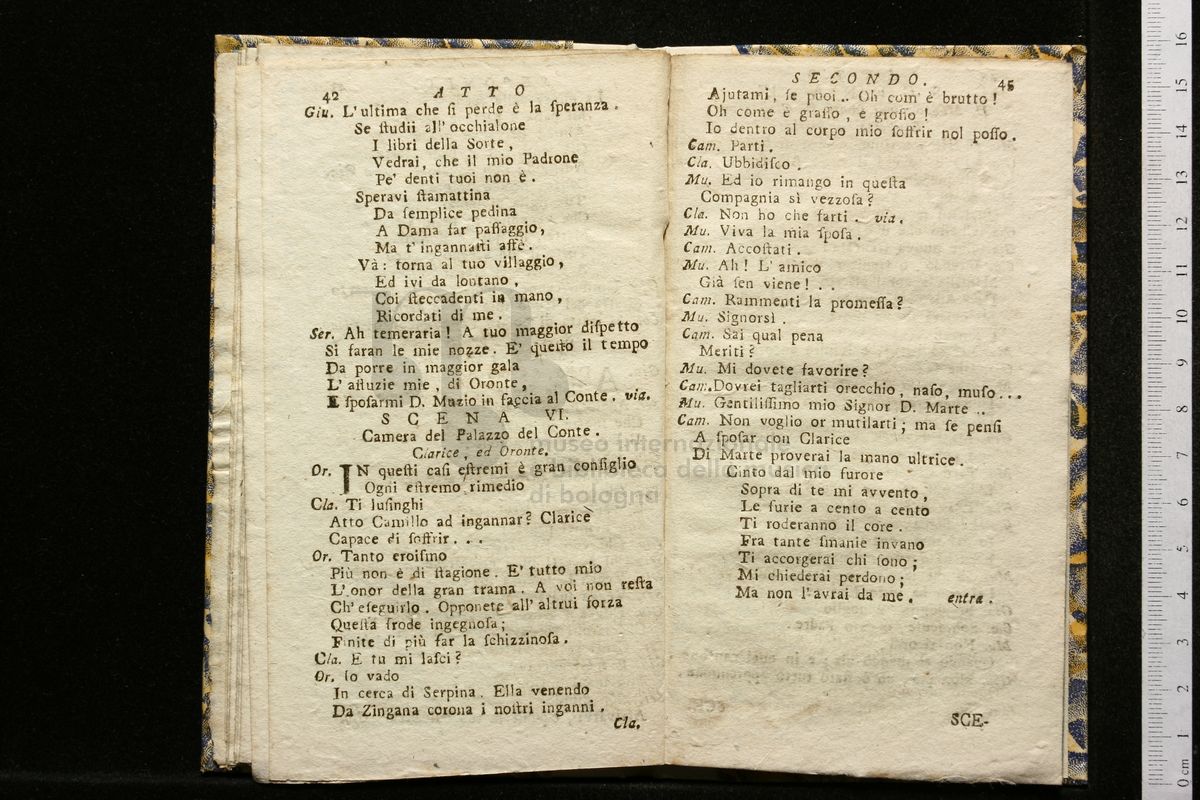 42 ATTO
Giu. L'ultima che ſi perde è la ſperanza.
Se ſtudii all'occhialone
I libri della Sorte,
Vedrai, che il mio Padrone
Pe' denti tuoi non è.
Speravi ſtamattina
Da ſemplice pedina
A Dama far paſſaggio,
Ma t'ingannaſti affè.
Và: torna al tuo villaggio,
Ed ivi da lontano,
Coi ſteccadenti in mano,
Ricordati di me.
Ser. Ah temeraria! A tuo maggior diſpetto
Si faran le mie nozze. E' queſto il tempo
Da porre in maggior gala
L'aſtuzie mie, di Oronte,
E ſpoſarmi D. Muzio in faccia al Conte. via.
SCENA VI.
Camera del Palazzo del Conte.
Clarice, ed Oronte.
Or. IN queſti caſi eſtremi è gran conſiglio
Ogni eſtremo rimedio
Cla. Ti luſinghi
Atto Camillo ad ingannar? Clarice
Capace di ſoffrir...
Or. Tanto eroiſmo
Più non è di ſtagione. E' tutto mio
L'onor della gran trama. A voi non reſta
Ch'eſeguirlo. Opponete all'altrui forza
Queſta frode ingegnoſa;
Finite di più far la ſchizzinoſa.
Cla. E tu mi laſci?
Or. Io vado
In cerca di Serpina. Ella venendo
Da Zingana corona i noſtri inganni.
Cla.
SECONDO. 45
Ajutami, ſe puoi.. Oh com'è brutto!
Oh come è graſſo, è groſſo!
Io dentro al corpo mio ſoffrir nol poſſo.
Cam. Parti.
Cla. Ubbidiſco.
Mu. Ed io rimango in queſta
Compagnia sì vezzoſa?
Cla. Non ho che farti. via.
Mu. Viva la mia ſpoſa.
Cam. Accoſtati.
Mu. Ah! L'amico
Già ſen viene!..
Cam. Rammenti la promeſſa?
Mu. Signorsì.
Cam. Sai qual pena
Meriti?
Mu. Mi dovete favorire?
Cam. Dovrei tagliarti orecchio, naſo, muſo...
Mu. Gentiliſſimo mio Signor D. Marte..
Cam. Non voglio or mutilarti; ma ſe penſi
A ſpoſar con Clarice
Di Marte proverai la mano ultrice.
Cinto dal mio furore
Sopra di te mi avvento,
Le furie a cento a cento
Ti roderanno il core.
Fra tante ſmanie invano
Ti accorgerai chi ſono;
Mi chiederai perdono;
Ma non l'avrai da me. entra.
SCE-
museo internazionale
biblioteca della
di bologna
0 cm 1 2 3 4 5 6 7 8 9 10 11 12 13 14 15 16